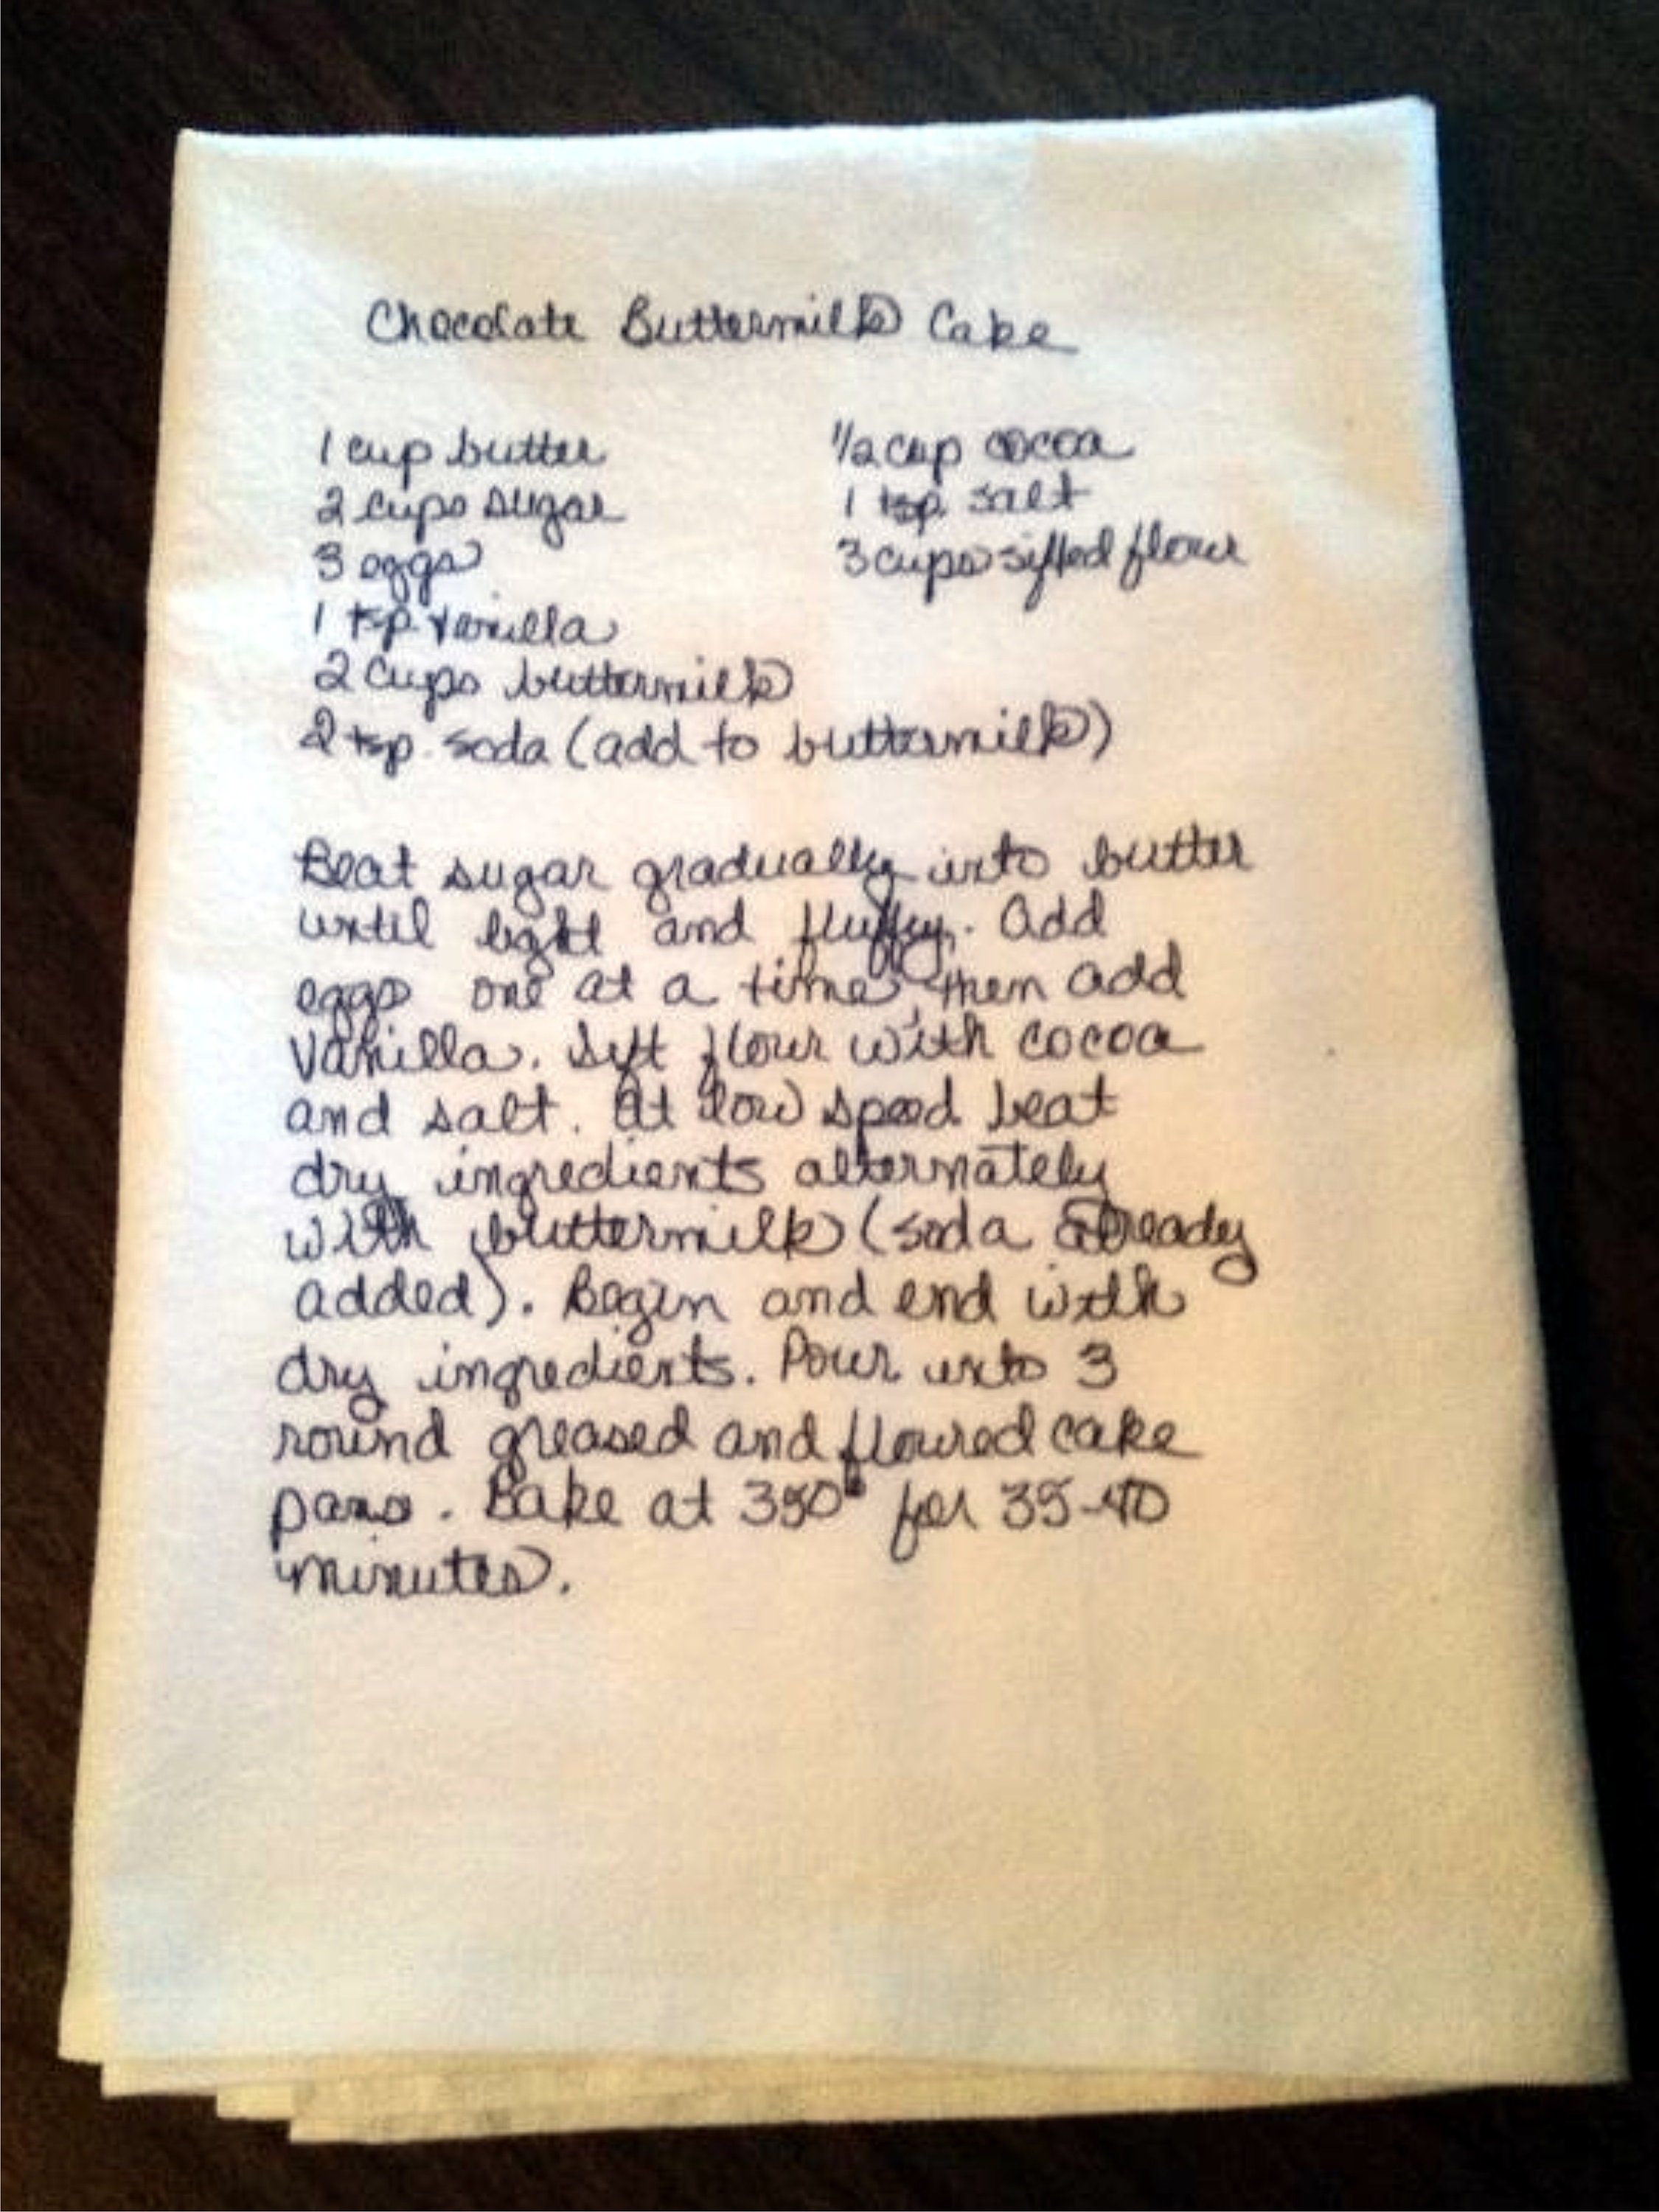 Chocolate Buttermilk Cake
1 cup butter
2 cups sugar
3 eggs
1 tsp. vanilla
2 cups buttermilk
2 tsp. soda (add to buttermilk)
1/2 cup cocoa
1 tsp. salt
3 cups sifted flour
Beat sugar gradually into butter
until light and fluffy. Add
eggs one at a time, then add
vanilla. Sift flour with cocoa
and salt. At low speed beat
dry ingredients alternately
with buttermilk (soda already
added). Begin and end with
dry ingredients. Pour into 3
round greased and floured cake
pans. Bake at 350° for 35-40
minutes.